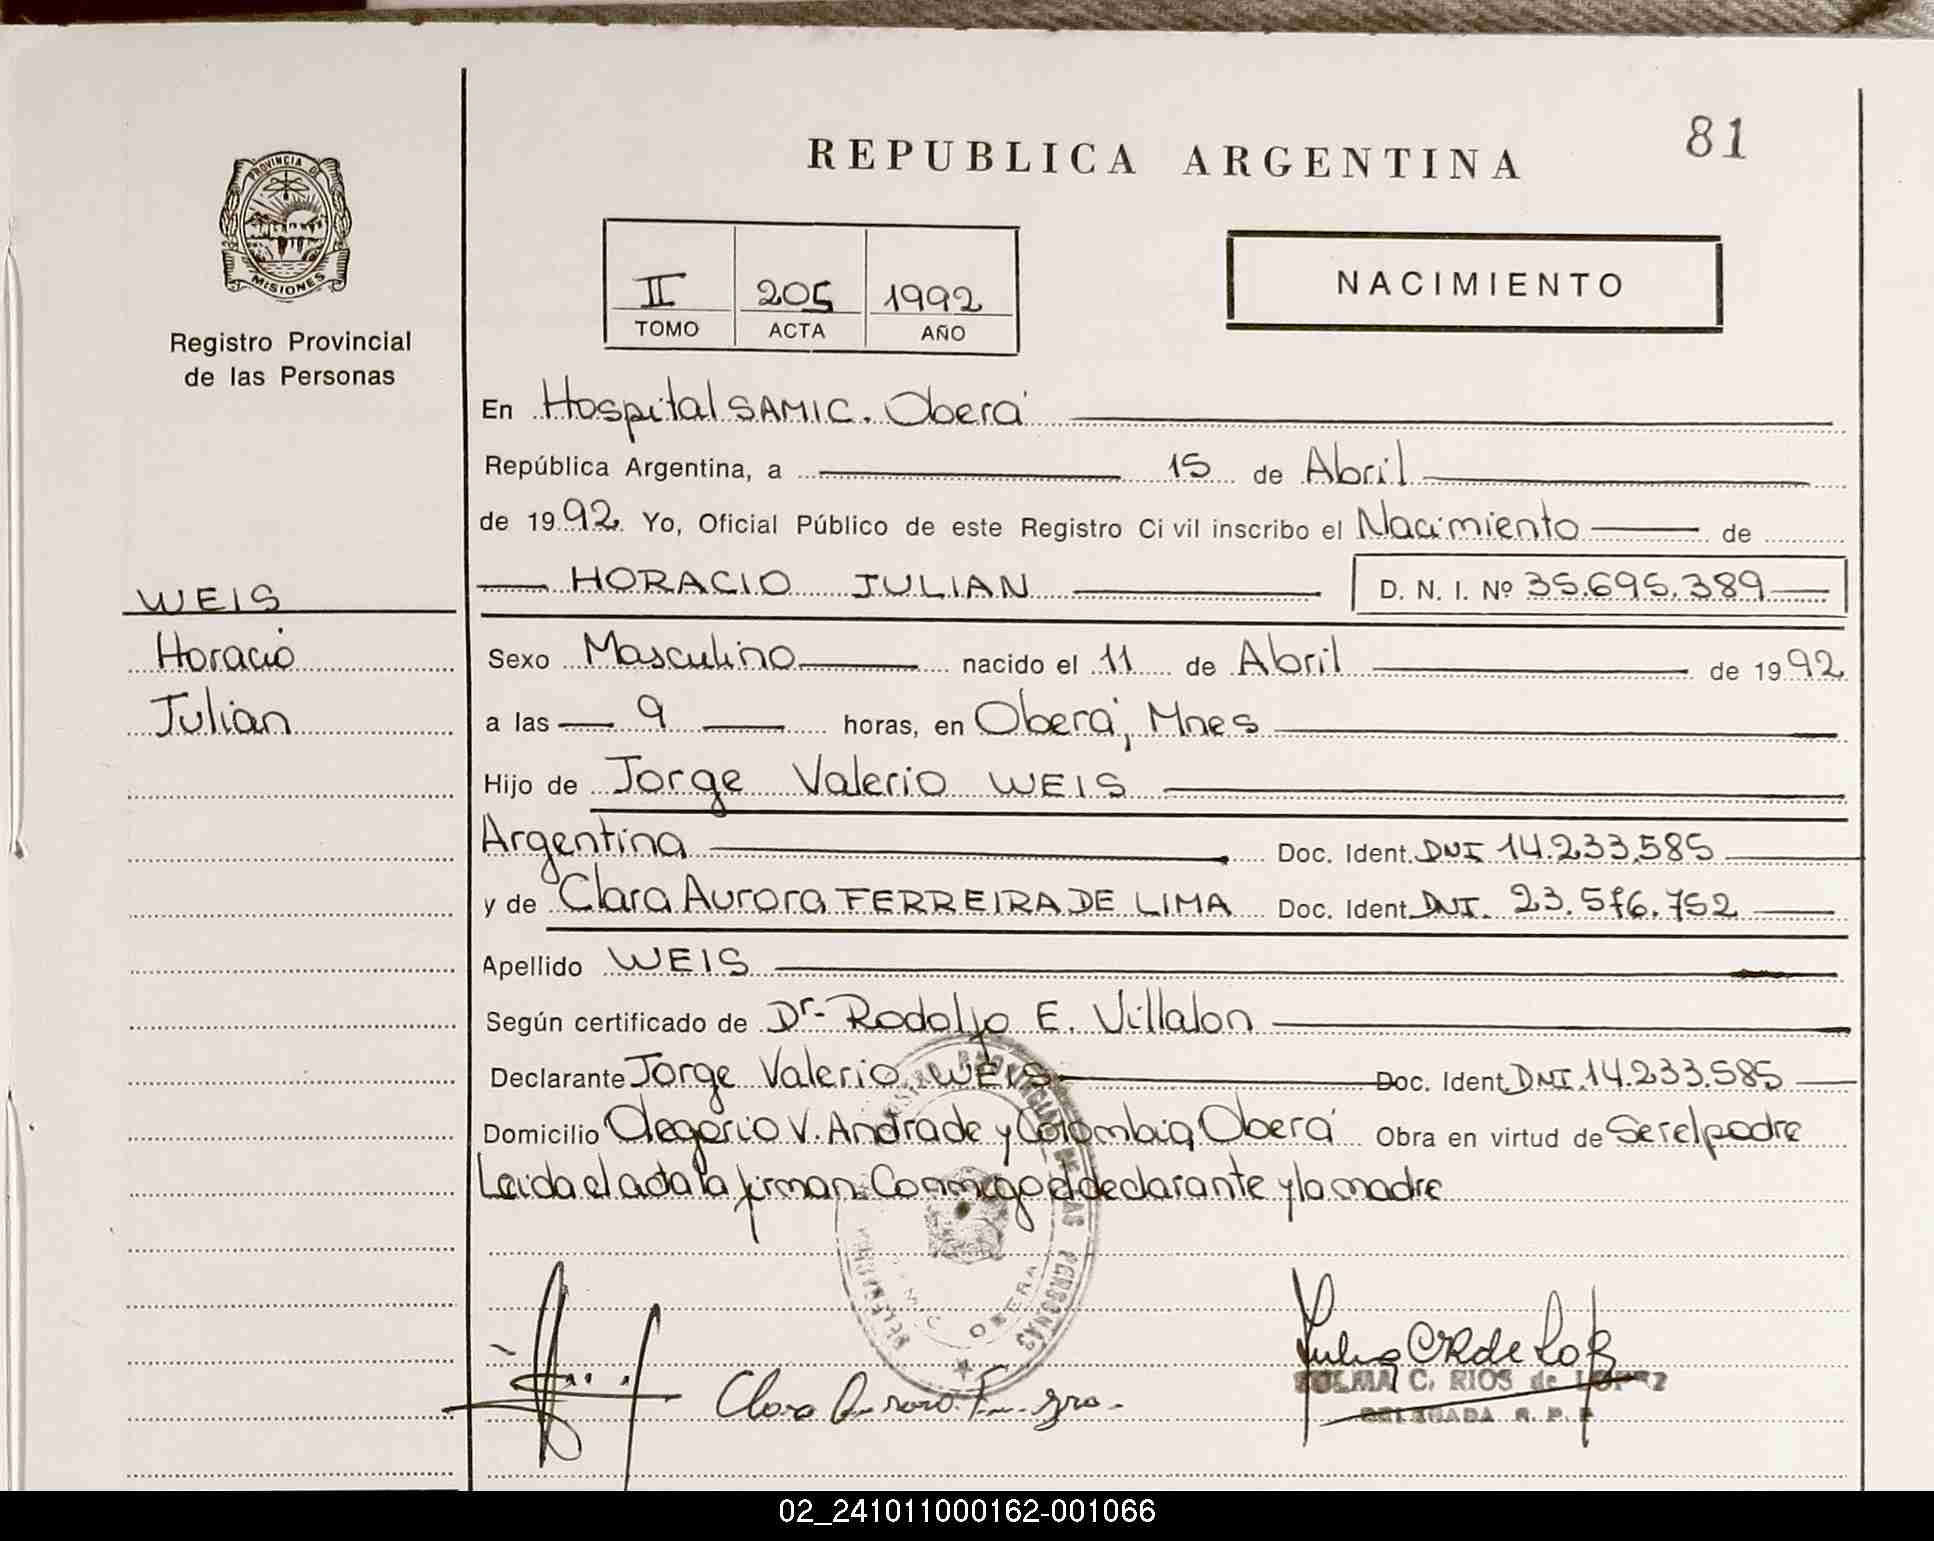 81
REPUBLICA ARGENTINA
PROVINCIA DE
MISIONES
Registro Provincial
de las Personas
II 205 1992
TOMO ACTA AÑO
NACIMIENTO
En Hospital SAMIC. Oberá
República Argentina, a 15 de Abril
de 1992. Yo, Oficial Público de este Registro Civil inscribo el Nacimiento de
HORACIO JULIAN D. N. I. Nº 35.695.389
WEIS
Horacio
Julian
Sexo Masculino nacido el 11 de Abril de 1992
a las 9 horas, en Oberá, Mnes
Hijo de Jorge Valerio WEIS
Argentina Doc. Ident. DNI 14.233.585
y de Clara Aurora FERREIRA DE LIMA Doc. Ident. DNI. 23.576.752
Apellido WEIS
Según certificado de Dr- Rodolfo E. Villalon
Declarante Jorge Valerio WEIS Doc. Ident. DNI.14.233.585
Domicilio Olegario V. Andrade y Colombia, Oberá Obra en virtud de Ser el padre
Leida el acta la firman Conmigo el declarante y la madre
PERSONAS
OBERA
Clara
C. RIOS de LOPEZ
DELEGADA R. P. P
02_241011000162-001066